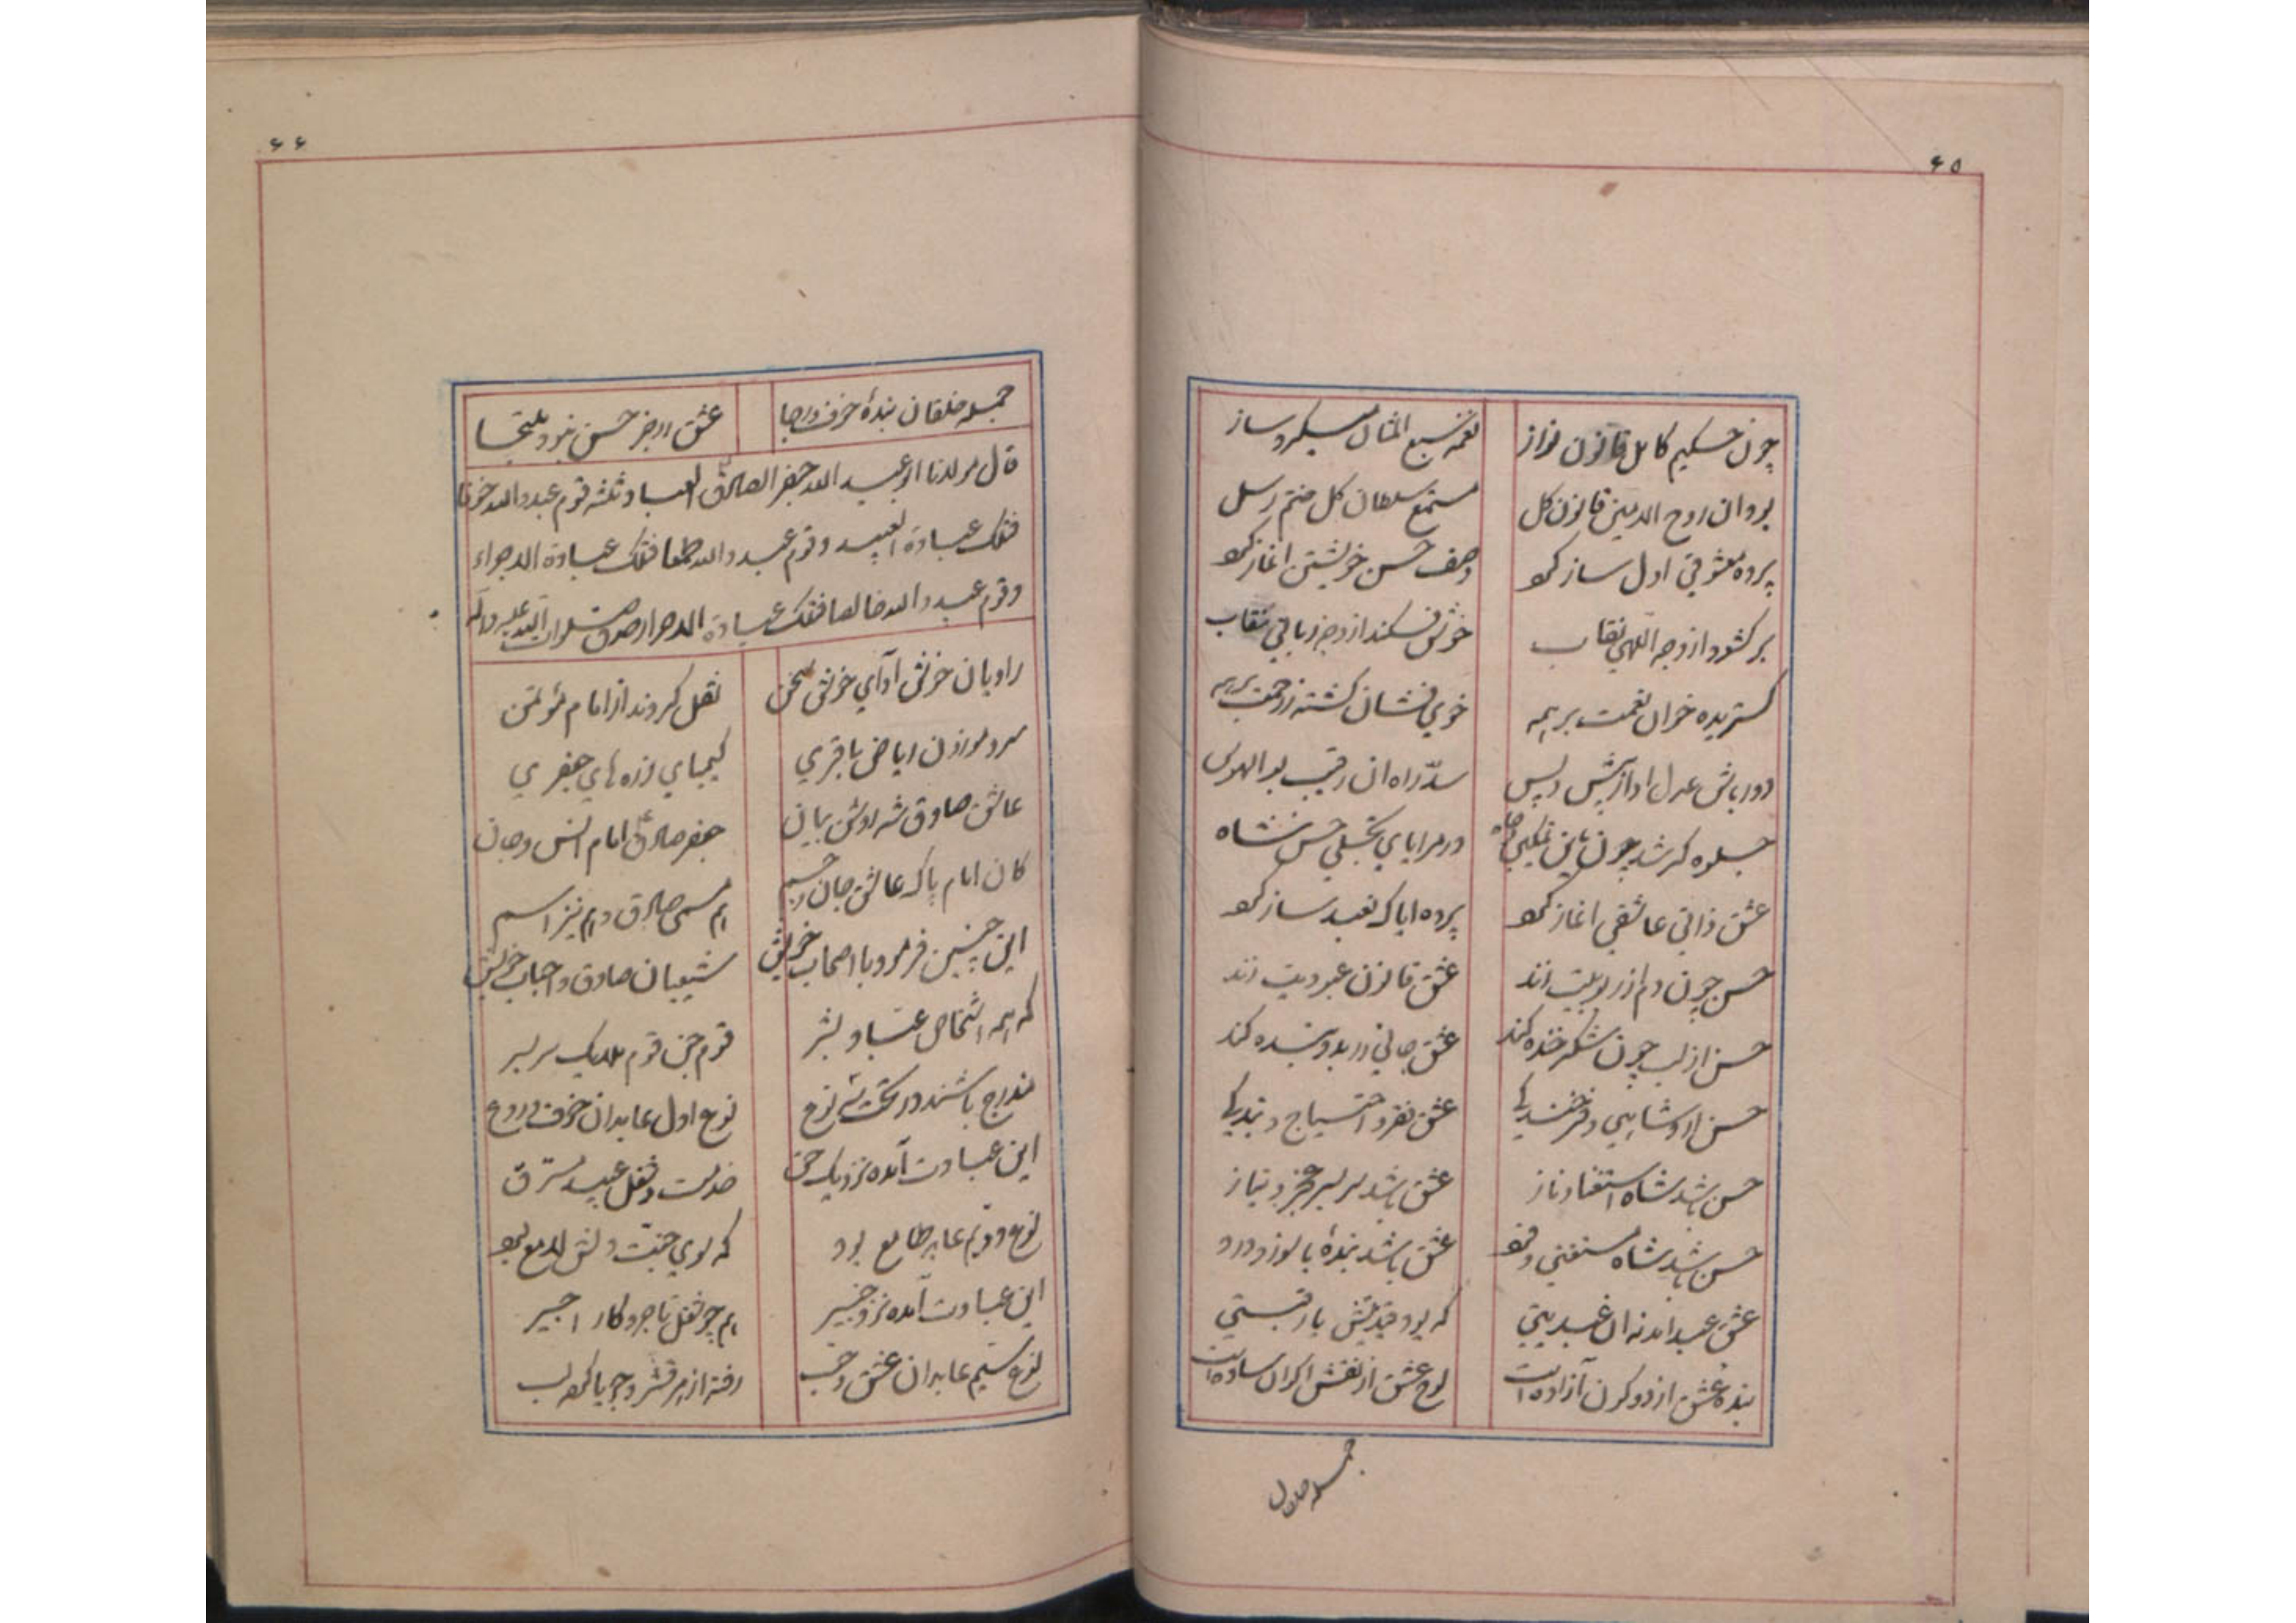 ۶۵
چون حکیم کامل قانون نواز نغمه سبع المثانی میکرد ساز
بود ان روح الامین قانون کل مستمع سلطان کل ختم رسل
پرده معشوقی اول ساز کرد وصف حسن خویشتن اغاز کرد
بر کشود از وجه اللهی نقاب خوش فکند از وجه ربانی نقاب
کستریده خوان نعمت بر همه خوی فشان کشته ز رحمت بر همه
دورباش عدل او از پیش و پس سدّ راه ان رقیب بو الهوس
جلوه کر شد چون باین تمکین و جاه در مرایای تجلی حسن شاه
عشق ذاتی عاشقی اغاز کرد پرده ایاک نعبد ساز کرد
حسن چون دم از ربوبیت زند عشق قانون عبودیت زند
حسن از لب چون شکر خنده کند عشق جانی را بدو بنده کند
حسن را و شاهی و فرخندکی عشق فقر و احتیاج و بندکی
حسن باشد شاه استغنا و ناز عشق باشد سر بسر عجز و نیاز
حسن باشد شاه مستغنی و فرد عشق باشد بندهٔ با سوز و درد
عشق عبد امد نه ان عبدیتی که بود قیدش بارقیتی
بنده عشق از دو کون آزاده است لوح عشق از نقش اکوان ساده است
جمله خلقان
۶۶
جمله خلقان بندهٔ خوف و رجا عشق را جز حسن نبود ملتجا
قال مولانا ابو عبد الله جعفر الصادق العباد ثلثه قوم عبدوا الله خوفا
فتلک عبادة العبید و قوم عبدوا الله طمعا فتلک عبادة الاجراء
و قوم عبدوا الله خالصا فتلک عبادة الاحرار صدق صلوات الله علیه و آله
راویان خوش آدای خوش سخن نقل کردند از امام مؤتمن
سرو موزون ریاض باقری کیمیای زره های جعفری
عاشق صادق شه روشن بیان جعفر صادق امام انس و جان
کان امام پاک عاشق جان و جسم هم مسمی صادق و هم نیز اسم
این چنین فرمود با اصحاب خویش شیعیان صادق و احباب خویش
که همه اشخاص عبّاد بشر قوم جن قوم ملایک سر بسر
مندرج باشند در تحت سه نوع نوع اول عابدان خوف و روع
این عبادت آمده نزدیک حق خدمت و فعل عبید مسترق
نوع دویم عابد طامع بود که بوی جنت دلش لامع بود
این عبادت آمده نزد خبیر هم چو فعل تاجر و کار اجیر
نوع سیم عابدان عشق و حب رفته از هر قشر و جویا کرد لب